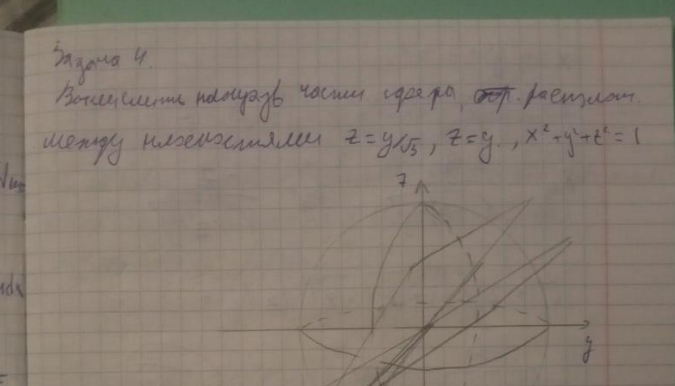 Задача 4.
Вычислить площадь части сферы, располож.
между плоскостями z = y/√3, z = y, x² + y² + z² = 1
z
y